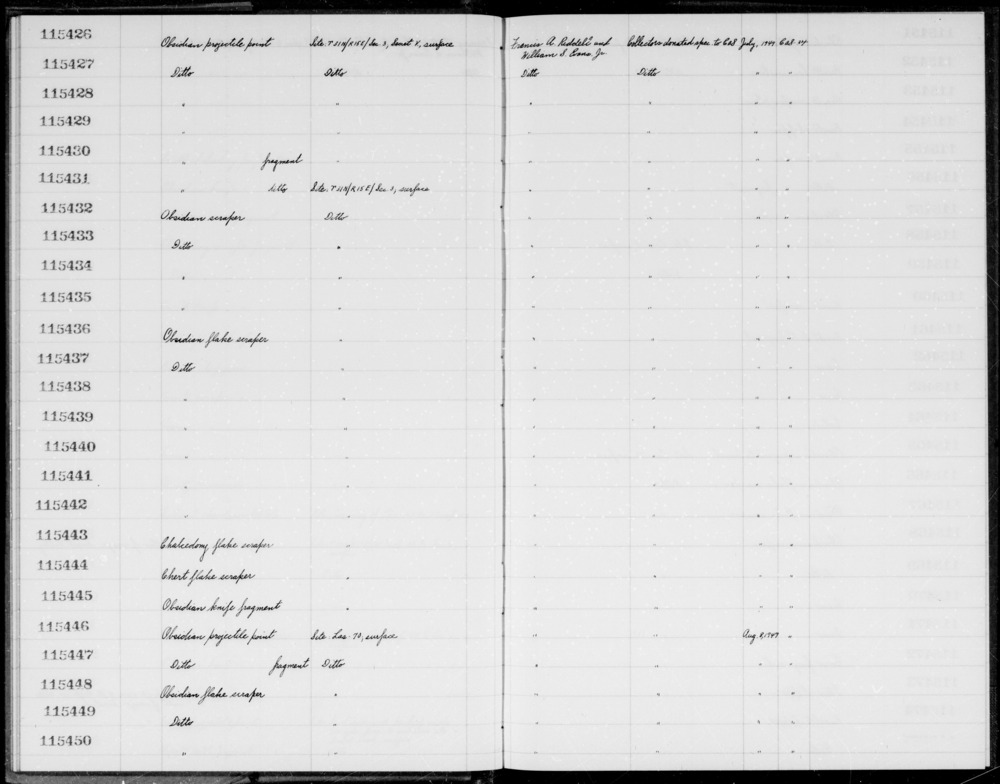 115426 Obsidian projectile point Site: T 21N/R15E/Sec 3, surface Francis A. Riddell and Collectors donated spec. to Cal July, 1949 Cal
William S. Evans, Jr.
115427 Ditto Ditto Ditto Ditto " "
115428 " " " " " "
115429 " " " " " "
115430 " fragment " " " " "
115431 " ditto Site: T 21N/R15E/Sec 3, surface " " " "
115432 Obsidian scraper Ditto " " " "
115433 Ditto " " " " "
115434 " " " " " "
115435 " " " " " "
115436 Obsidian flake scraper " " " " "
115437 Ditto " " " " "
115438 " " " " " "
115439 " " " " " "
115440 " " " " " "
115441 " " " " " "
115442 " " " " " "
115443 Chalcedony flake scraper " " " " "
115444 Chert flake scraper " " " " "
115445 Obsidian knife fragment " " " " "
115446 Obsidian projectile point Site Las-70, surface " " Aug. 8, 1949 "
115447 Ditto fragment Ditto " " " "
115448 Obsidian flake scraper " " " " "
115449 Ditto " " " " "
115450 " " " " " "